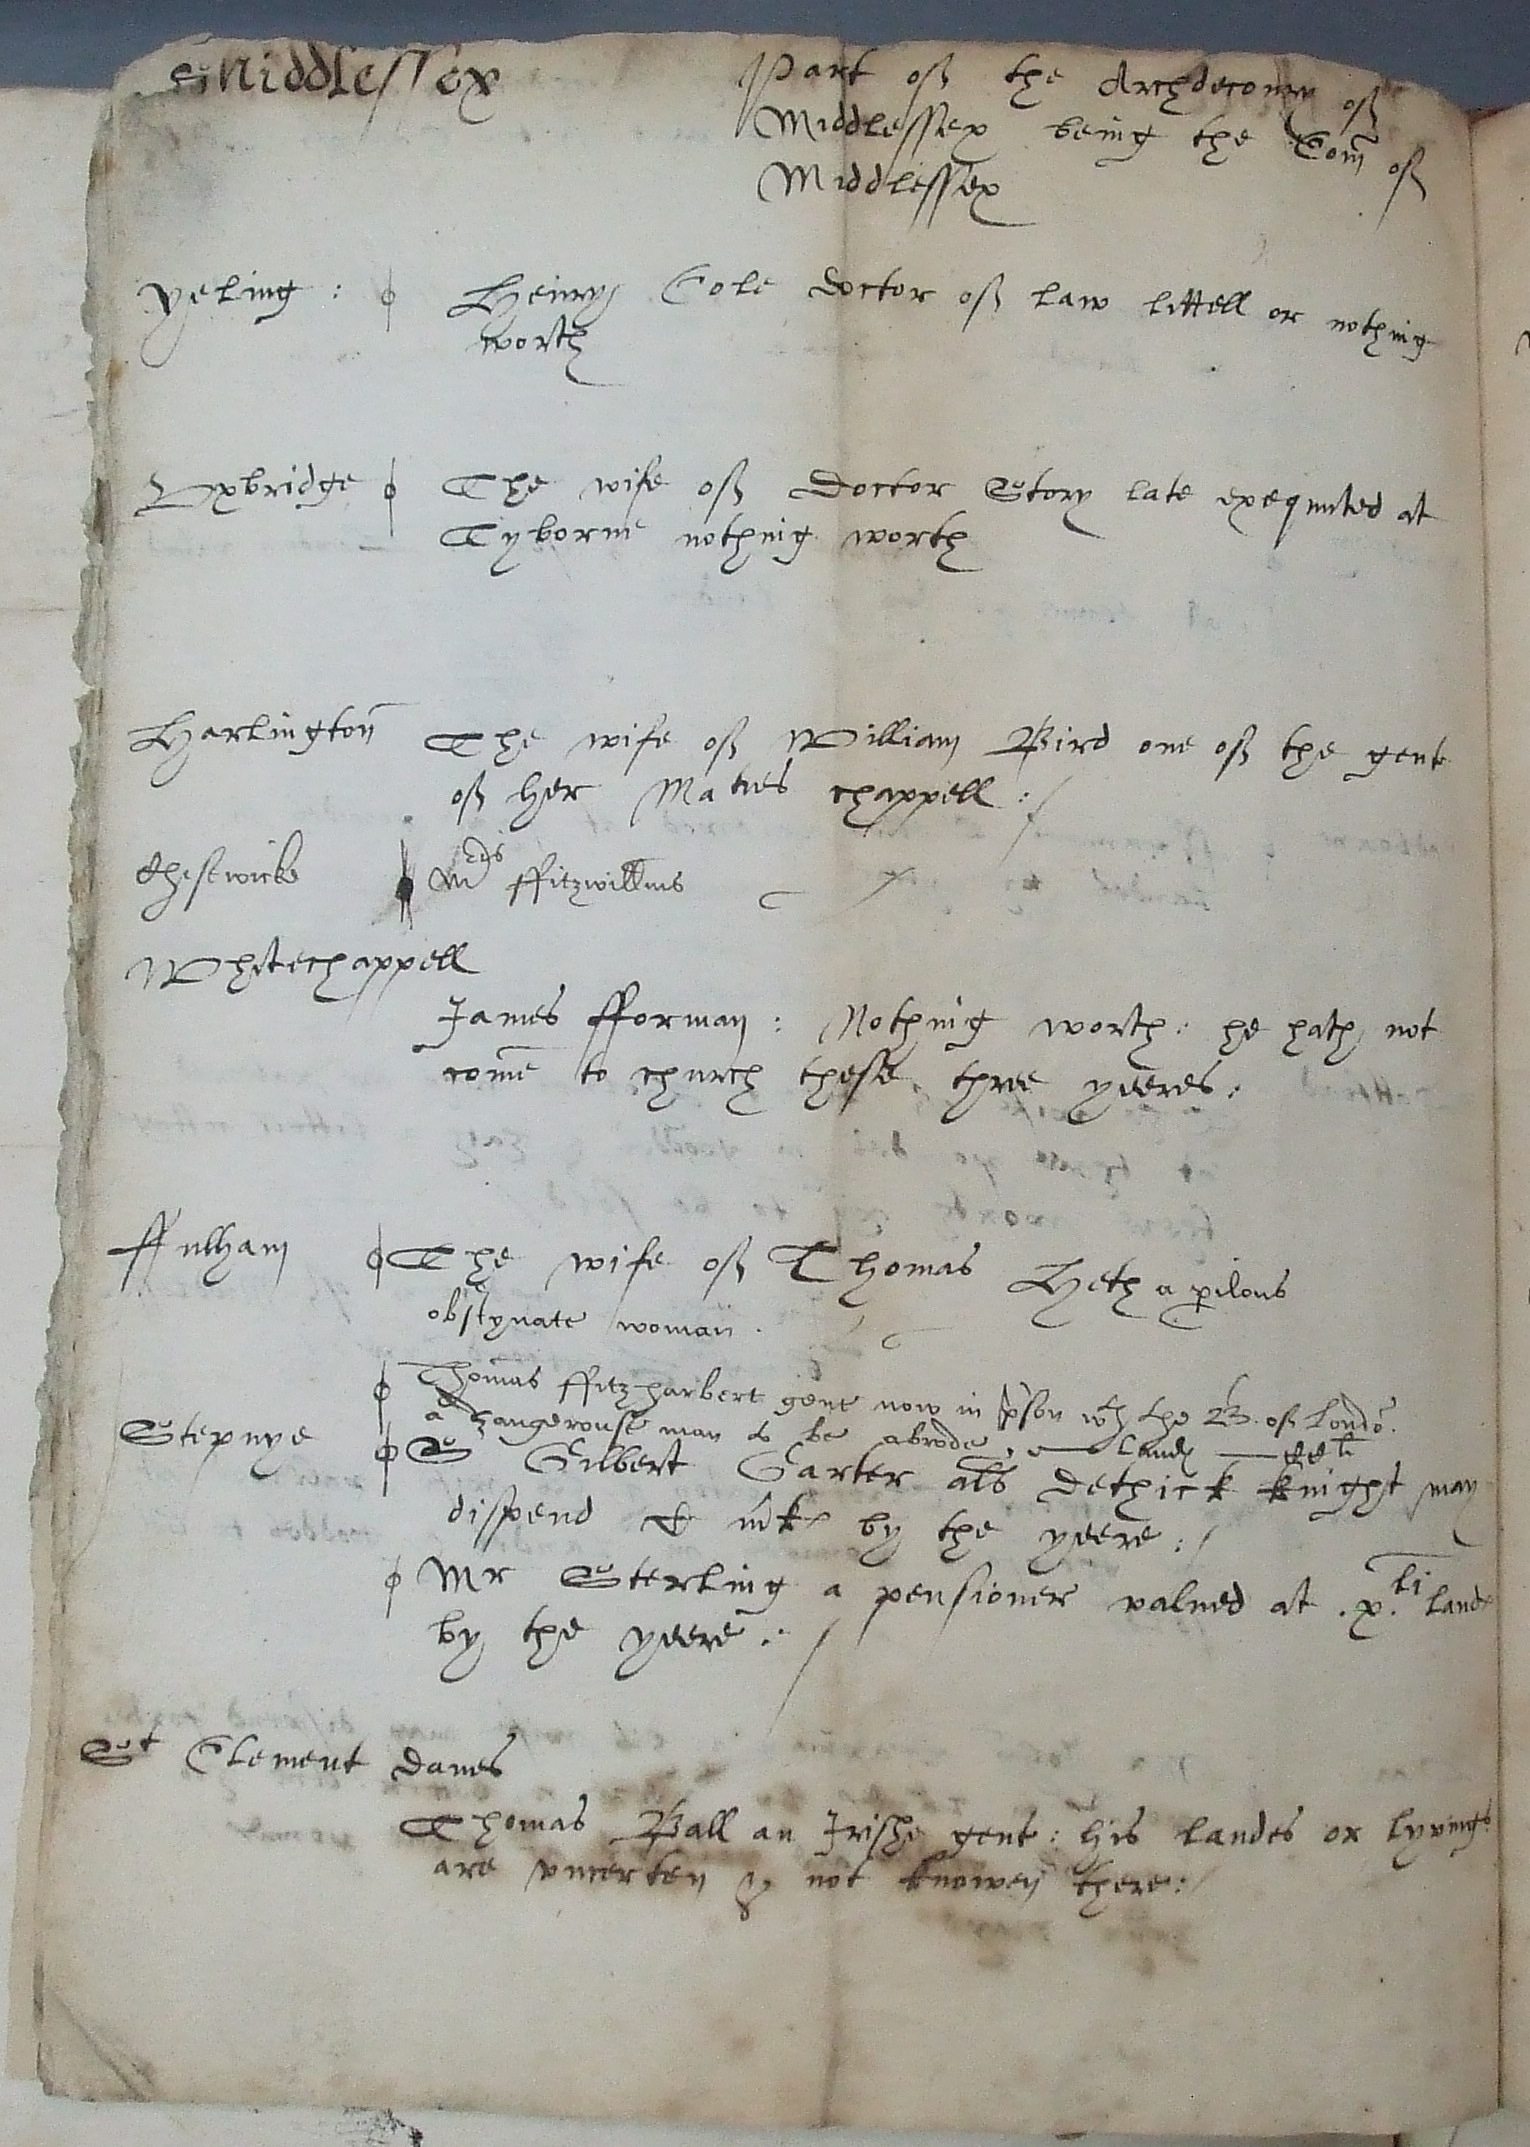 Middlessex
Part off the Archdeconry off
Middlessex being the Com̃ off
Middlessex
Yeling : Henry Cole doctor off law littell or nothing
worth
Vxbridge The wife off Doctor Story late exequuted at
Tyborne nothing worth
Harlington The wife off William Bird one off the gent
off her Maties chappell :/
Chesewicke Mrs ffitzwillms
Whitechappell
James fforman : Nothing worth : he hath not
come to church these three yeeres :
ffulham The wife off Thomas Heth a pilous
obstynate woman .
Thomas ffitzharbert gent now in pson wth the B. off Londō.
a dangerouse man to be abrode
Stepnye Sr Gilbert Garter als Dethick knight may
dispend mk by the yeere :/
Mr Sterling a pensioner valued at .x. li land
by the yeere :/
St Clement Danes
Thomas Ball an Irishe gent : his landes or lyvings
are vncerten & not knowen there :/